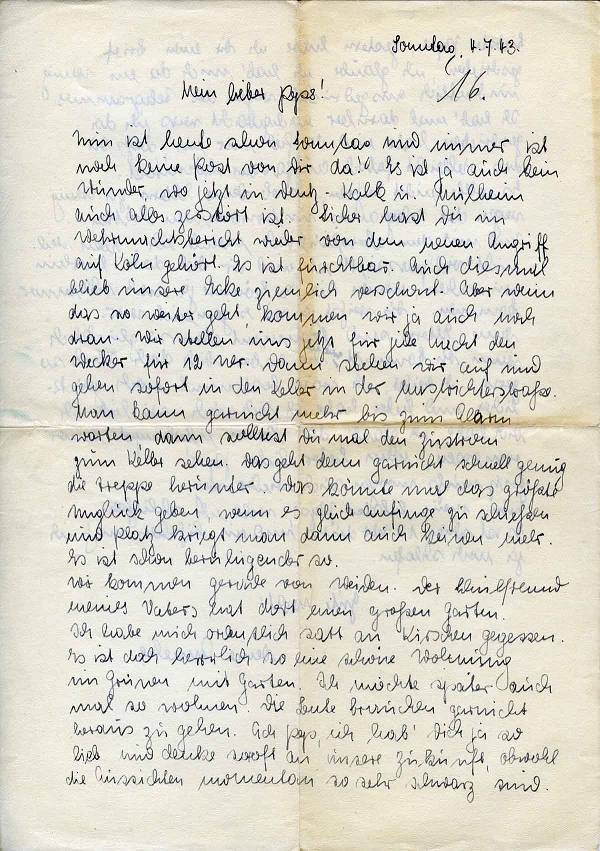 Sonntag, 4.7.43.
16.
Mein lieber Paps!
Nun ist heute schon Sonntag und immer ist
noch keine Post von Dir da! Es ist ja auch kein
Wunder, wo jetzt in Deutz, Kalk u. Mülheim
auch alles zerstört ist. Sicher hast Du im
Wehrmachtsbericht wieder von dem neuen Angriff
auf Köln gehört. Es ist furchtbar. Auch diesmal
blieb unsere Ecke ziemlich verschont. Aber wenn
das so weiter geht, kommen wir ja auch noch
dran. Wir stellen uns jetzt für jede Nacht den
Wecker für 12 Uhr. Dann stehen wir auf und
gehen sofort in den Keller in der
Man kann garnicht mehr bis zum Alarm
warten dann solltest Du mal den Zustrom
zum Keller sehen. Das geht denn garnicht schnell genug
die Treppe herunter. Das könnte mal das größte
Unglück geben, wenn es gleich anfinge zu schießen
und Platz kriegt man dann auch keinen mehr.
Es ist schon beruhigender so.
Wir kommen gerade von Weiden. Der Schulfreund
meines Vaters hat dort einen großen Garten.
Ich habe mich ordentlich satt an Kirschen gegessen.
Es ist doch herrlich so eine schöne Wohnung
im Grünen mit Garten. Ich möchte später auch
mal so wohnen. Die Leute brauchen garnicht
heraus zu gehen. Ach Paps, ich hab' Dich ja so
lieb und denke so oft an unsere Zukunft, obwohl
die Aussichten momentan so sehr schwarz sind.